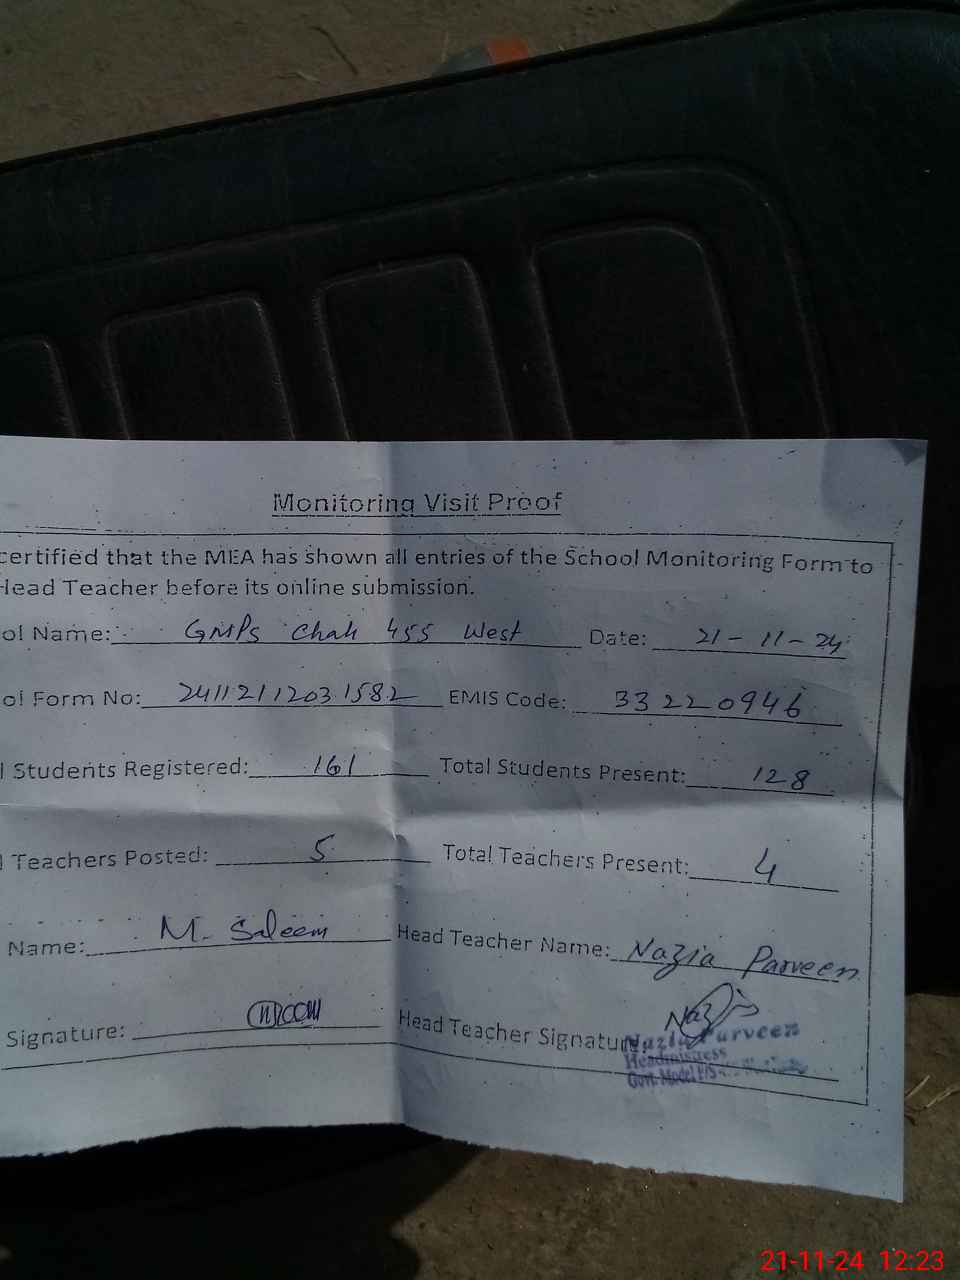 Monitoring Visit Proof
certified that the MEA has shown all entries of the School Monitoring Form to
Head Teacher before its online submission.
ol Name: GMPS Chak 455 West Date: 21-11-24
ol Form No: 24112112031582 EMIS Code: 33220946
l Students Registered: 161 Total Students Present: 128
l Teachers Posted: 5 Total Teachers Present: 4
Name: M. Saleem Head Teacher Name: Nazia Parveen
Signature: Head Teacher Signature:
Nazia Parveen
Headmistress
Govt. Model P/S
21-11-24 12:23